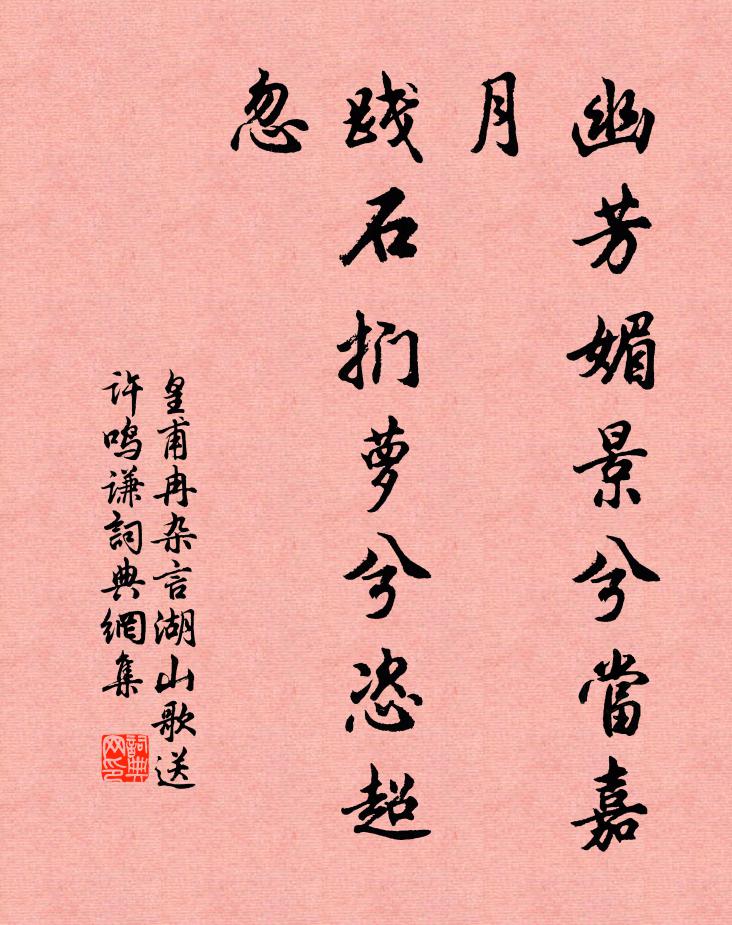 幽芳媚景兮當嘉
月
践石捫萝兮恣超
忽
皇甫冉杂言湖山歌送
许鸣谦詞典網集
詞典
网印